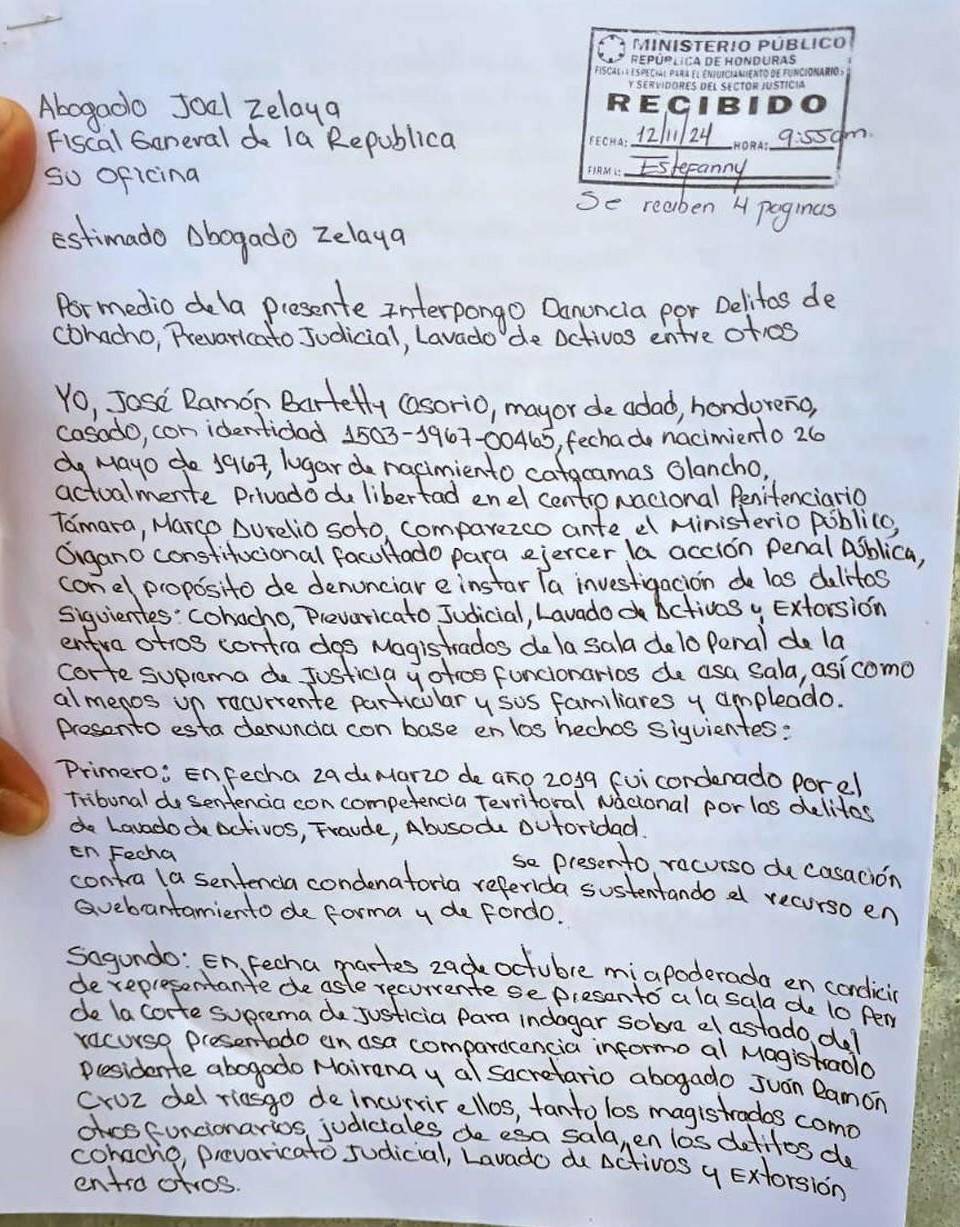 MINISTERIO PÚBLICO
REPÚBLICA DE HONDURAS
FISCALIA ESPECIAL PARA EL ENJUICIAMIENTO DE FUNCIONARIOS
Y SERVIDORES DEL SECTOR JUSTICIA
RECIBIDO
FECHA: 12/11/24 HORA: 9:55am.
FIRMA: Estefanny
Se reciben 4 paginas
Abogado Joel Zelaya
Fiscal General de la Republica
Su Oficina
Estimado Abogado Zelaya
Por medio de la presente Interpongo Denuncia por Delitos de
Cohecho, Prevaricato Judicial, Lavado de Activos entre otros
Yo, José Ramón Bartetty Osorio, mayor de edad, hondureño,
casado, con identidad 1503-1967-00465, fecha de nacimiento 26
de Mayo de 1967, lugar de nacimiento catacamas Olancho,
actualmente Privado de libertad en el Centro Nacional Penitenciario
Támara, Marco Aurelio Soto, Comparezco ante el Ministerio Público,
Órgano constitucional facultado para ejercer la acción Penal Pública,
con el propósito de denunciar e instar la investigación de los delitos
Siguientes: Cohecho, Prevaricato Judicial, Lavado de Activos y Extorsión
entre otros contra dos Magistrados de la Sala de lo Penal de la
Corte Suprema de Justicia y otros funcionarios de esa Sala, así como
al menos un recurrente particular y sus familiares y empleado.
Presento esta denuncia con base en los hechos siguientes:
Primero: En fecha 29 de Marzo de año 2019 fui condenado por el
Tribunal de Sentencia con competencia Territoral Nacional por los delitos
de Lavado de Activos, Fraude, Abuso de Autoridad.
En Fecha se presento recurso de casación
contra la sentencia condenatoria referida sustentando el recurso en
Quebrantamiento de forma y de fondo.
Segundo: En fecha martes 29 de octubre mi apoderada en condicir
de representante de este recurrente se presentó a la sala de lo Pen
de la Corte Suprema de Justicia para indagar sobre el estado del
recurso presentado en esa comparecencia informo al Magistrado
Presidente abogado Mairena y al Secretario abogado Juan Ramón
Cruz del riesgo de incurrir ellos, tanto los magistrados como
otros funcionarios judiciales de esa sala, en los delitos de
cohecho, prevaricato Judicial, Lavado de Activos y Extorsión
entre otros.